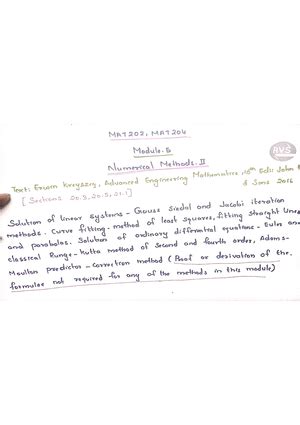 RVS
MAT202, MAT204
Module-5
Numerical Methods-II
Text: Erwin Kreyszig, Advanced Engineering Mathematics, 10th Edn John
& Sons 2016
[Sections 20.3, 20.5, 21.1]
Solution of linear systems - Gauss Siedal and Jacobi iteration
methods. Curve fitting - method of least squares, fitting straight lines
and parabolas. Solution of ordinary differential equations - Euler and
classical Runge-Kutta method of Second and fourth order, Adams-
Moulton predictor-correction method (Proof or derivation of the
formulae not required for any of the methods in this module)